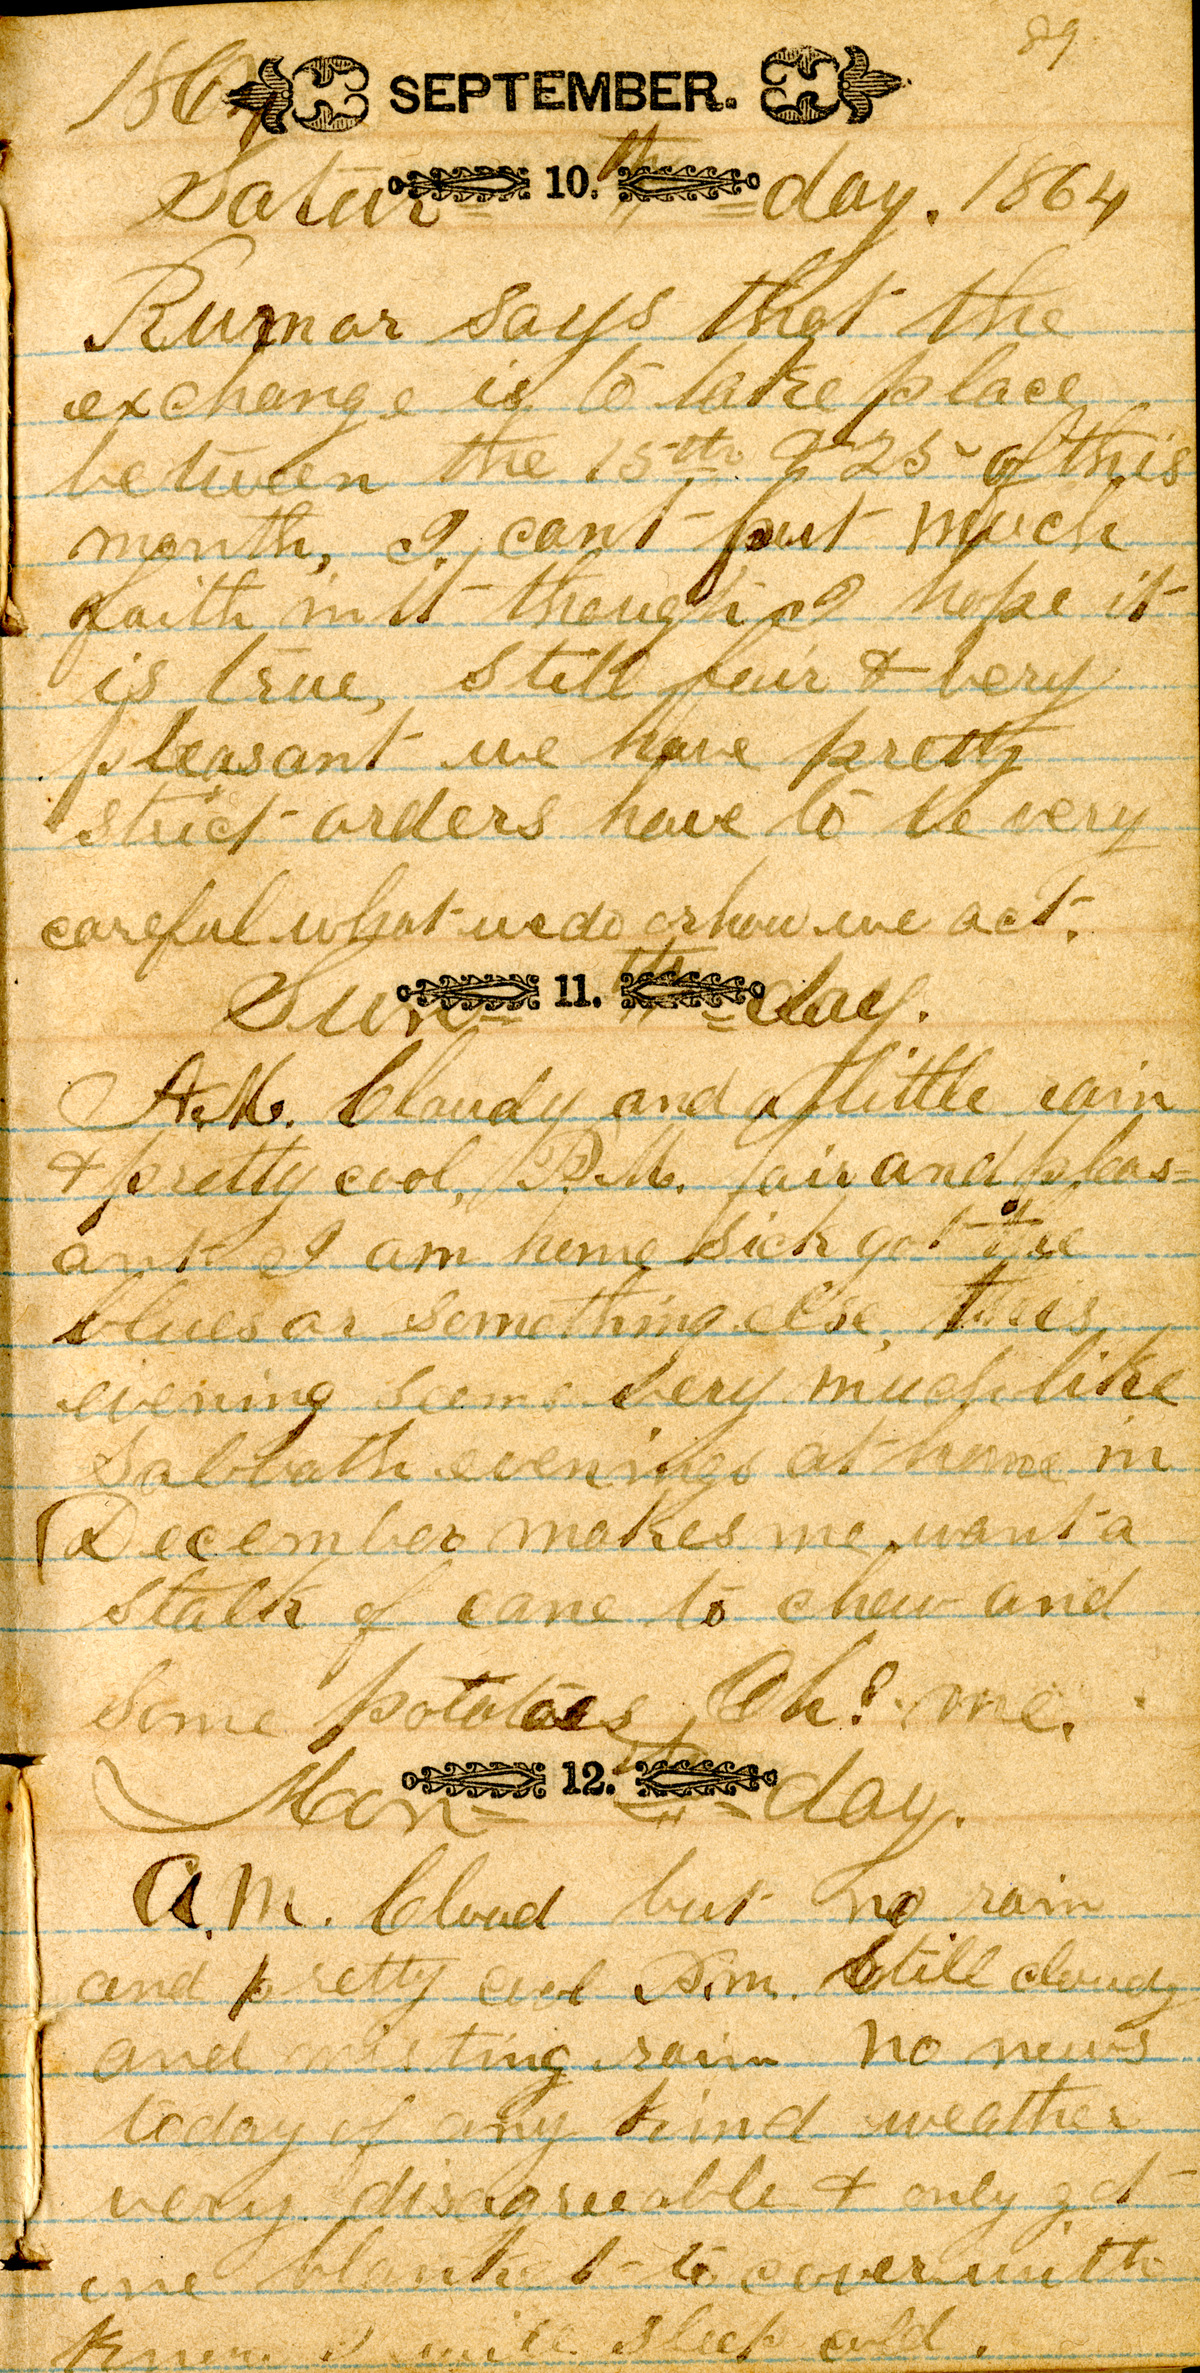 1864 SEPTEMBER. 89
Satur= 10.th =day. 1864
Rumor says that the
exchange is to take place
between the 15th & 25 of this
month, I cant put much
faith in it though I hope it
is true, still fair & very
pleasant we have pretty
strict orders have to be very
careful what we do or how we act.
Sun= 11.th =day.
A.M. Cloudy and a little rain
& pretty cool, P.M. fair and pleas=
ant I am home sick got the
blues or something else, this
evening seems very much like
Sabbath evenings at home in
December makes me want a
stalk of cane to chew and
some potatoes Oh! me.
Mon= 12.th =day.
A.M. Cloud but no rain
and pretty cool P.m. Still cloudy
and misting rain no news
today of any kind weather
very disagreeable & only got
one blanket to cover with
know I will sleep cold.